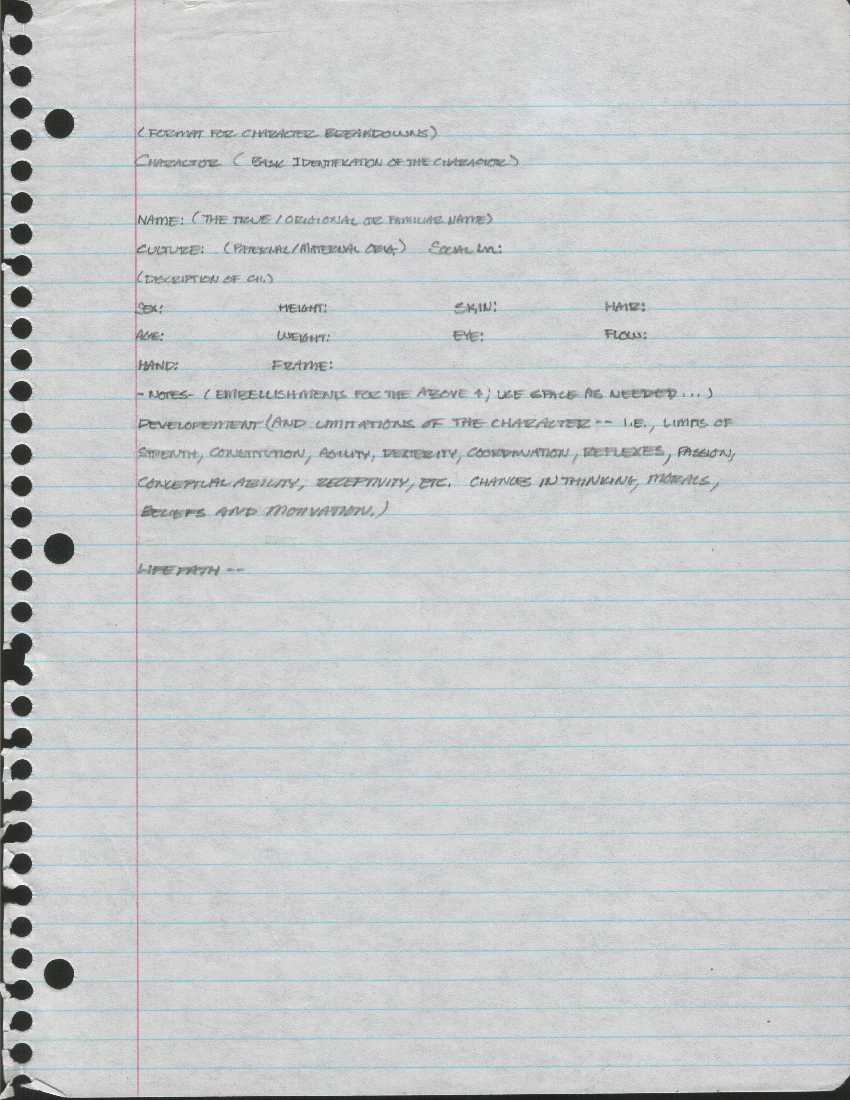 (FORMAT FOR CHARACTER BREAKDOWNS)
CHARACTOR ( BASIC IDENTIFIKATION OF THE CHARACTOR)
NAME: (THE TRUE / ORIGIONAL OR FAMILIAR NAME)
CULTURE: (PATERNAL/MATERNAL ORIG.) SOCIAL LVL:
(DISCRIPTION OF CH.)
SEX: HEIGHT: SKIN: HAIR:
AGE: WEIGHT: EYE: FLOW:
HAND: FRAME:
- NOTES- (EMBELLISHMENTS FOR THE ABOVE ↑; USE SPACE AS NEEDED...)
DEVELOPEMENT (AND LIMITATIONS OF THE CHARACTER -- I.E., LIMITS OF
STRENTH, CONSTITUTION, AGILITY, DEXTERITY, COORDINATION, REFLEXES, PASSION,
CONCEPTUAL ABILITY, RECEPTIVITY, ETC. CHANGES IN THINKING, MORALS,
BELIEFS AND MOTIVATION.)
LIFEPATH --